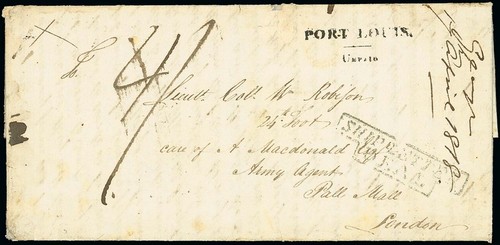 PORT LOUIS.
UNPAID
4/
Lieutt. Coll. Wm Robison
24th Foot
care of A Macdonald Esqr
Army Agent
Pall Mall
London
SHIP LETTER
April 1818